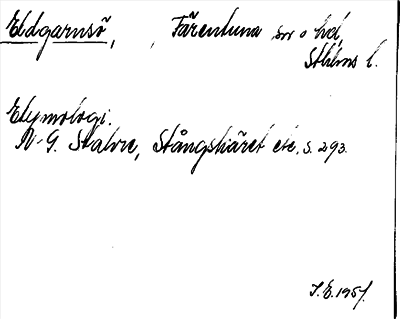 Eldgarnsö, , Färentuna sn o hd,
Sthlms l.
Etymologi.
N. G. Stahre, Stångskäret etc. s. 293.
S.E. 1957.